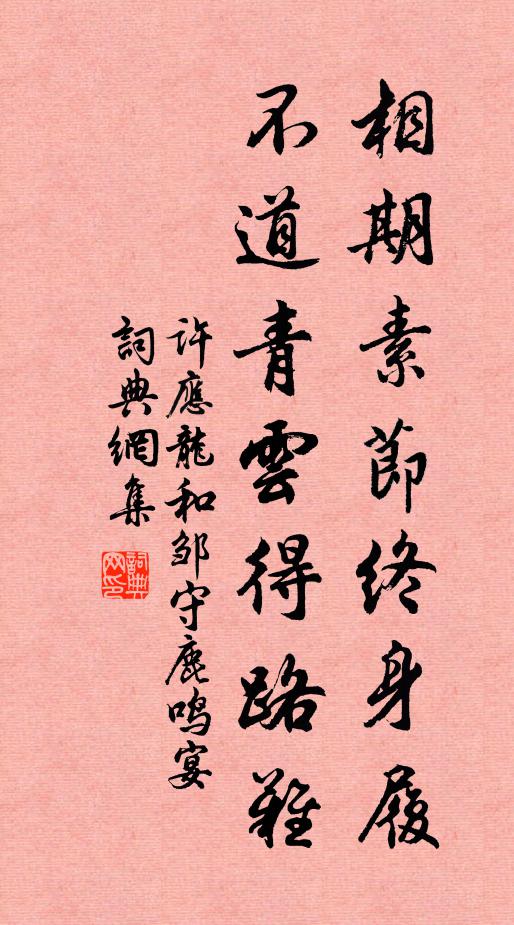 相期素節終身履
不道青雲得路難
許應龍和邹守鹿鸣宴
詞典網集
詞典网印